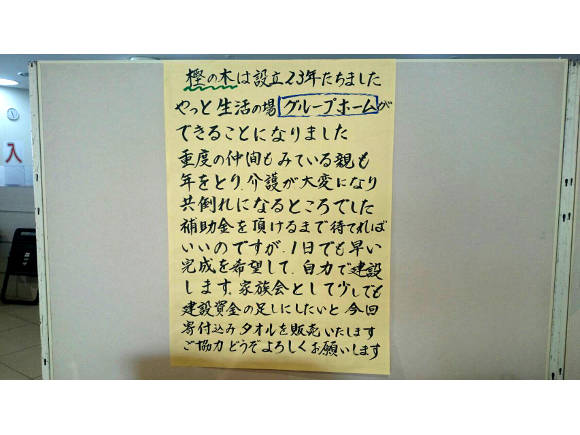 樫の木は設立23年たちました
やっと生活の場グループホームが
できることになりました
重度の仲間もみている親も
年をとり、介護が大変になり
共倒れになるところでした
補助金を頂けるまで待てれば
いいのですが、1日でも早い
完成を希望して、自力で建設
します。家族会として少しでも
建設資金の足しにしたいと今回
寄付込みタオルを販売いたします
ご協力どうぞよろしくお願いします
入